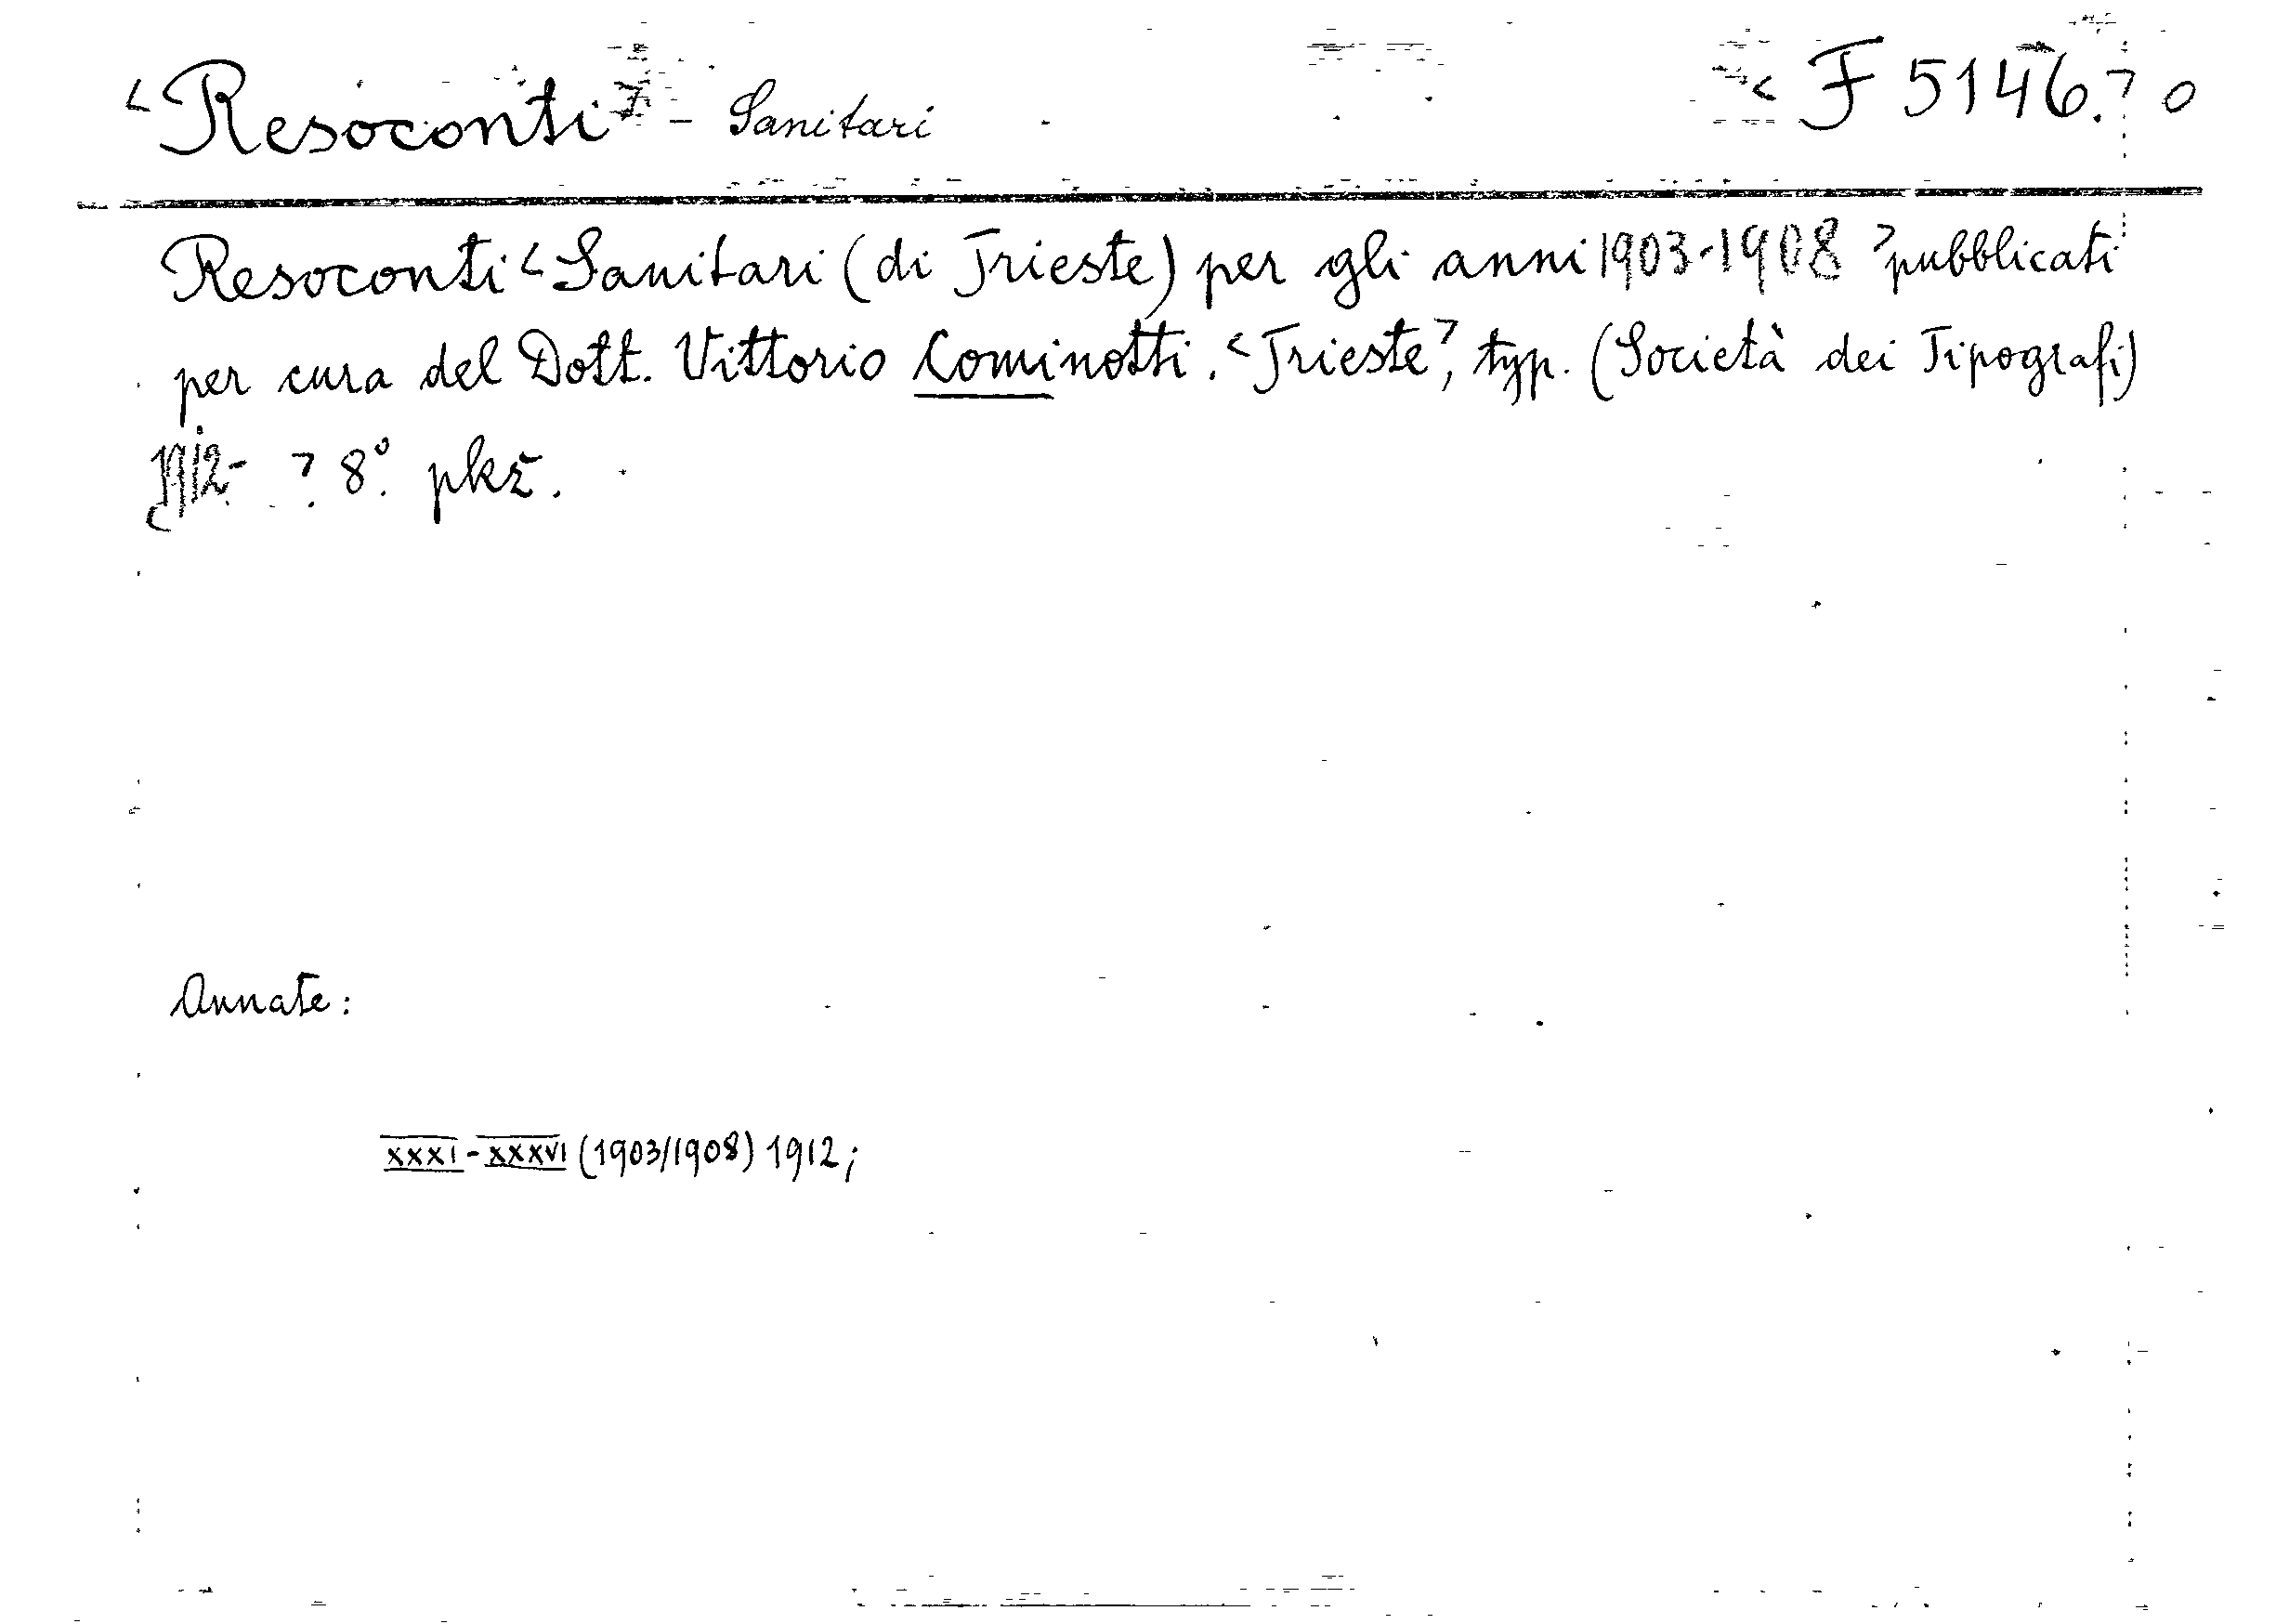 <Resoconti> - Sanitari <F 5146.> o
Resoconti <Sanitari (di Trieste) per gli anni 1903-1908 > pubblicati
per cura del Dott. Vittorio Cominotti. <Trieste>, typ. (Società dei Tipografi)
1912- > 8°. pkž.
Annate:
XXXI - XXXVI (1903/1908) 1912;